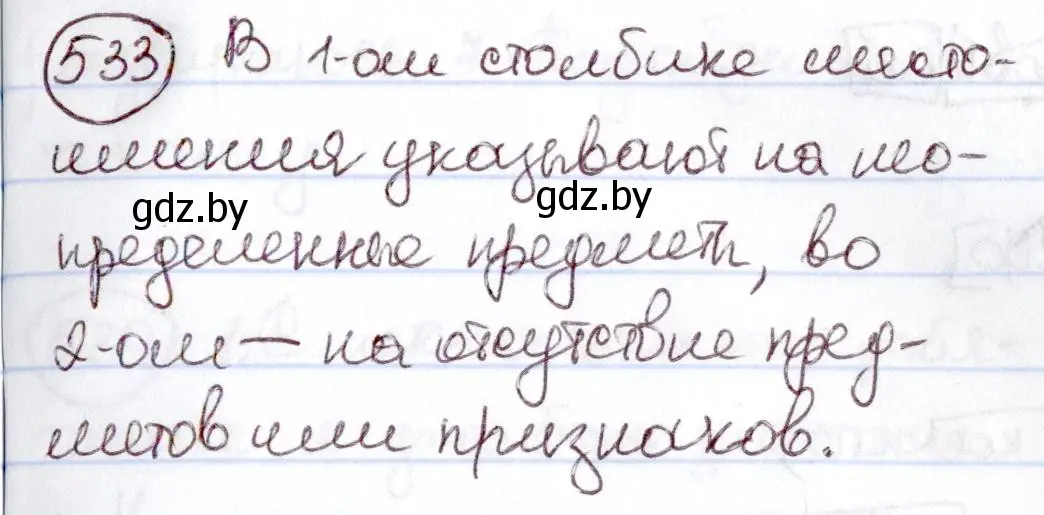 533 В 1-ом столбике место-
имения указывают на нео-
gdz.by gdz.by
пределенные предметы, во
2-ом — на отсутствие пред-
метов или признаков.